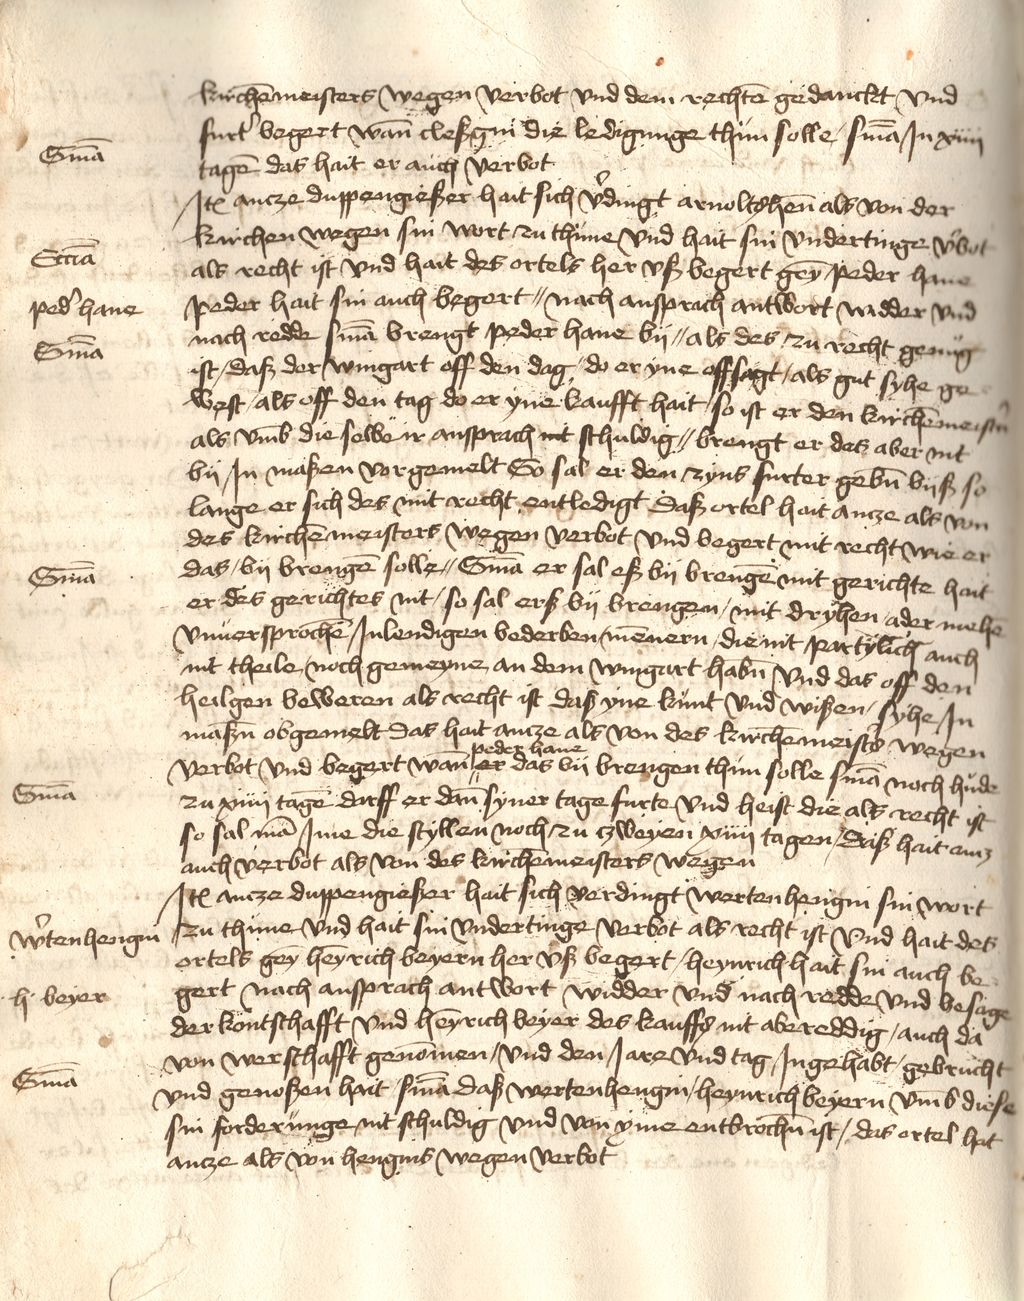 kirchēmeisters wegen verbot vnd dem rechtē gedanckt vnd
furt' begert wan̄ clesgin die ledigunge thun solle / sm̄a In xiiii
Sm̄a
tagē das hait er auch verbot
Itē ancze duppengießer hait sich v'dingt arnoltshen̄ als von der
kirchen wegen sin wort zu thune vnd hait sin vndertinge v'bot
Eccīa
als recht ist vnd hait des ortels her vß begert gēy peder hane
ped' hane
peder hait sin auch begert // nach ansprach antwort widder vnd
nach redde sm̄a brengt peder hane bij // als des zu recht genūg
Sm̄a
ist / daß der wingart off den dag / do er yne offsagt / als gut syhe ge
west / als off den tag do er yne kaufft hait / so ist er den kirchēmeistern
als vmb die selbe ir ansprach nit schuldig // brengt er des aber nit
bij / In maßen vorgemelt So sal er den zyns furter gebn̄ bijß so
lange er sich des mit recht entledigt Daß ortel hait ancze als von
des kirchēmeisters wegen verbot vnd begert mit recht wie er
das / bij brengē solle // Sm̄a er sal eß bij brengē mit gerichte hait
Sm̄a
er des gerichtes nit / so sal erß bij brengen / mit dryhen / ader mehē
vnuersprochē / Inlendigen bederben / mēnern / die nit partylich auch
nit theile / noch gemeyne an dem wingart habn̄ vnd das off den
heilgen beweren als recht ist daß yne kunt vnd wißen / syhe / In
maßn̄ obgemelt das hait ancze als von des kirchēmeist's wegen
peder hane
verbot vnd begert wan̄ er das bij brengen thun solle sm̄a noch hude
Sm̄a
zu xiiii tagē darff er dan̄ syner tage furte vnd heist die als recht ist
so sal mā Ime die styllen noch zu czweyen xiiii tagen / Daß hait ancz
auch verbot als von des kirchēmeisters wegen
Itē ancze duppengießer hait sich verdingt wertenhengin sin wort
w'tenhengin
zu thune vnd hait sin vndertinge verbot als recht ist vnd hait des
ortels gēy heyrich beyern her vß begert / heynrich hait sin auch be
h beyer
gert nach ansprach antwort widder vnd nach redde vnd besage
der kontschafft vnd heyrich beyer des kauffs nit abereddig / auch da
von werschafft genōmen / vnd den / Jare vnd tag / Ingehabt / gebrucht
Sm̄a
vnd genoßen hait / sm̄a daß wertenhengin / heynrich beyern vmb diese
sin forderunge nit schuldig vnd von yme entbrochn̄ ist / das ortel hait
ancze als von hengins wegen verbot